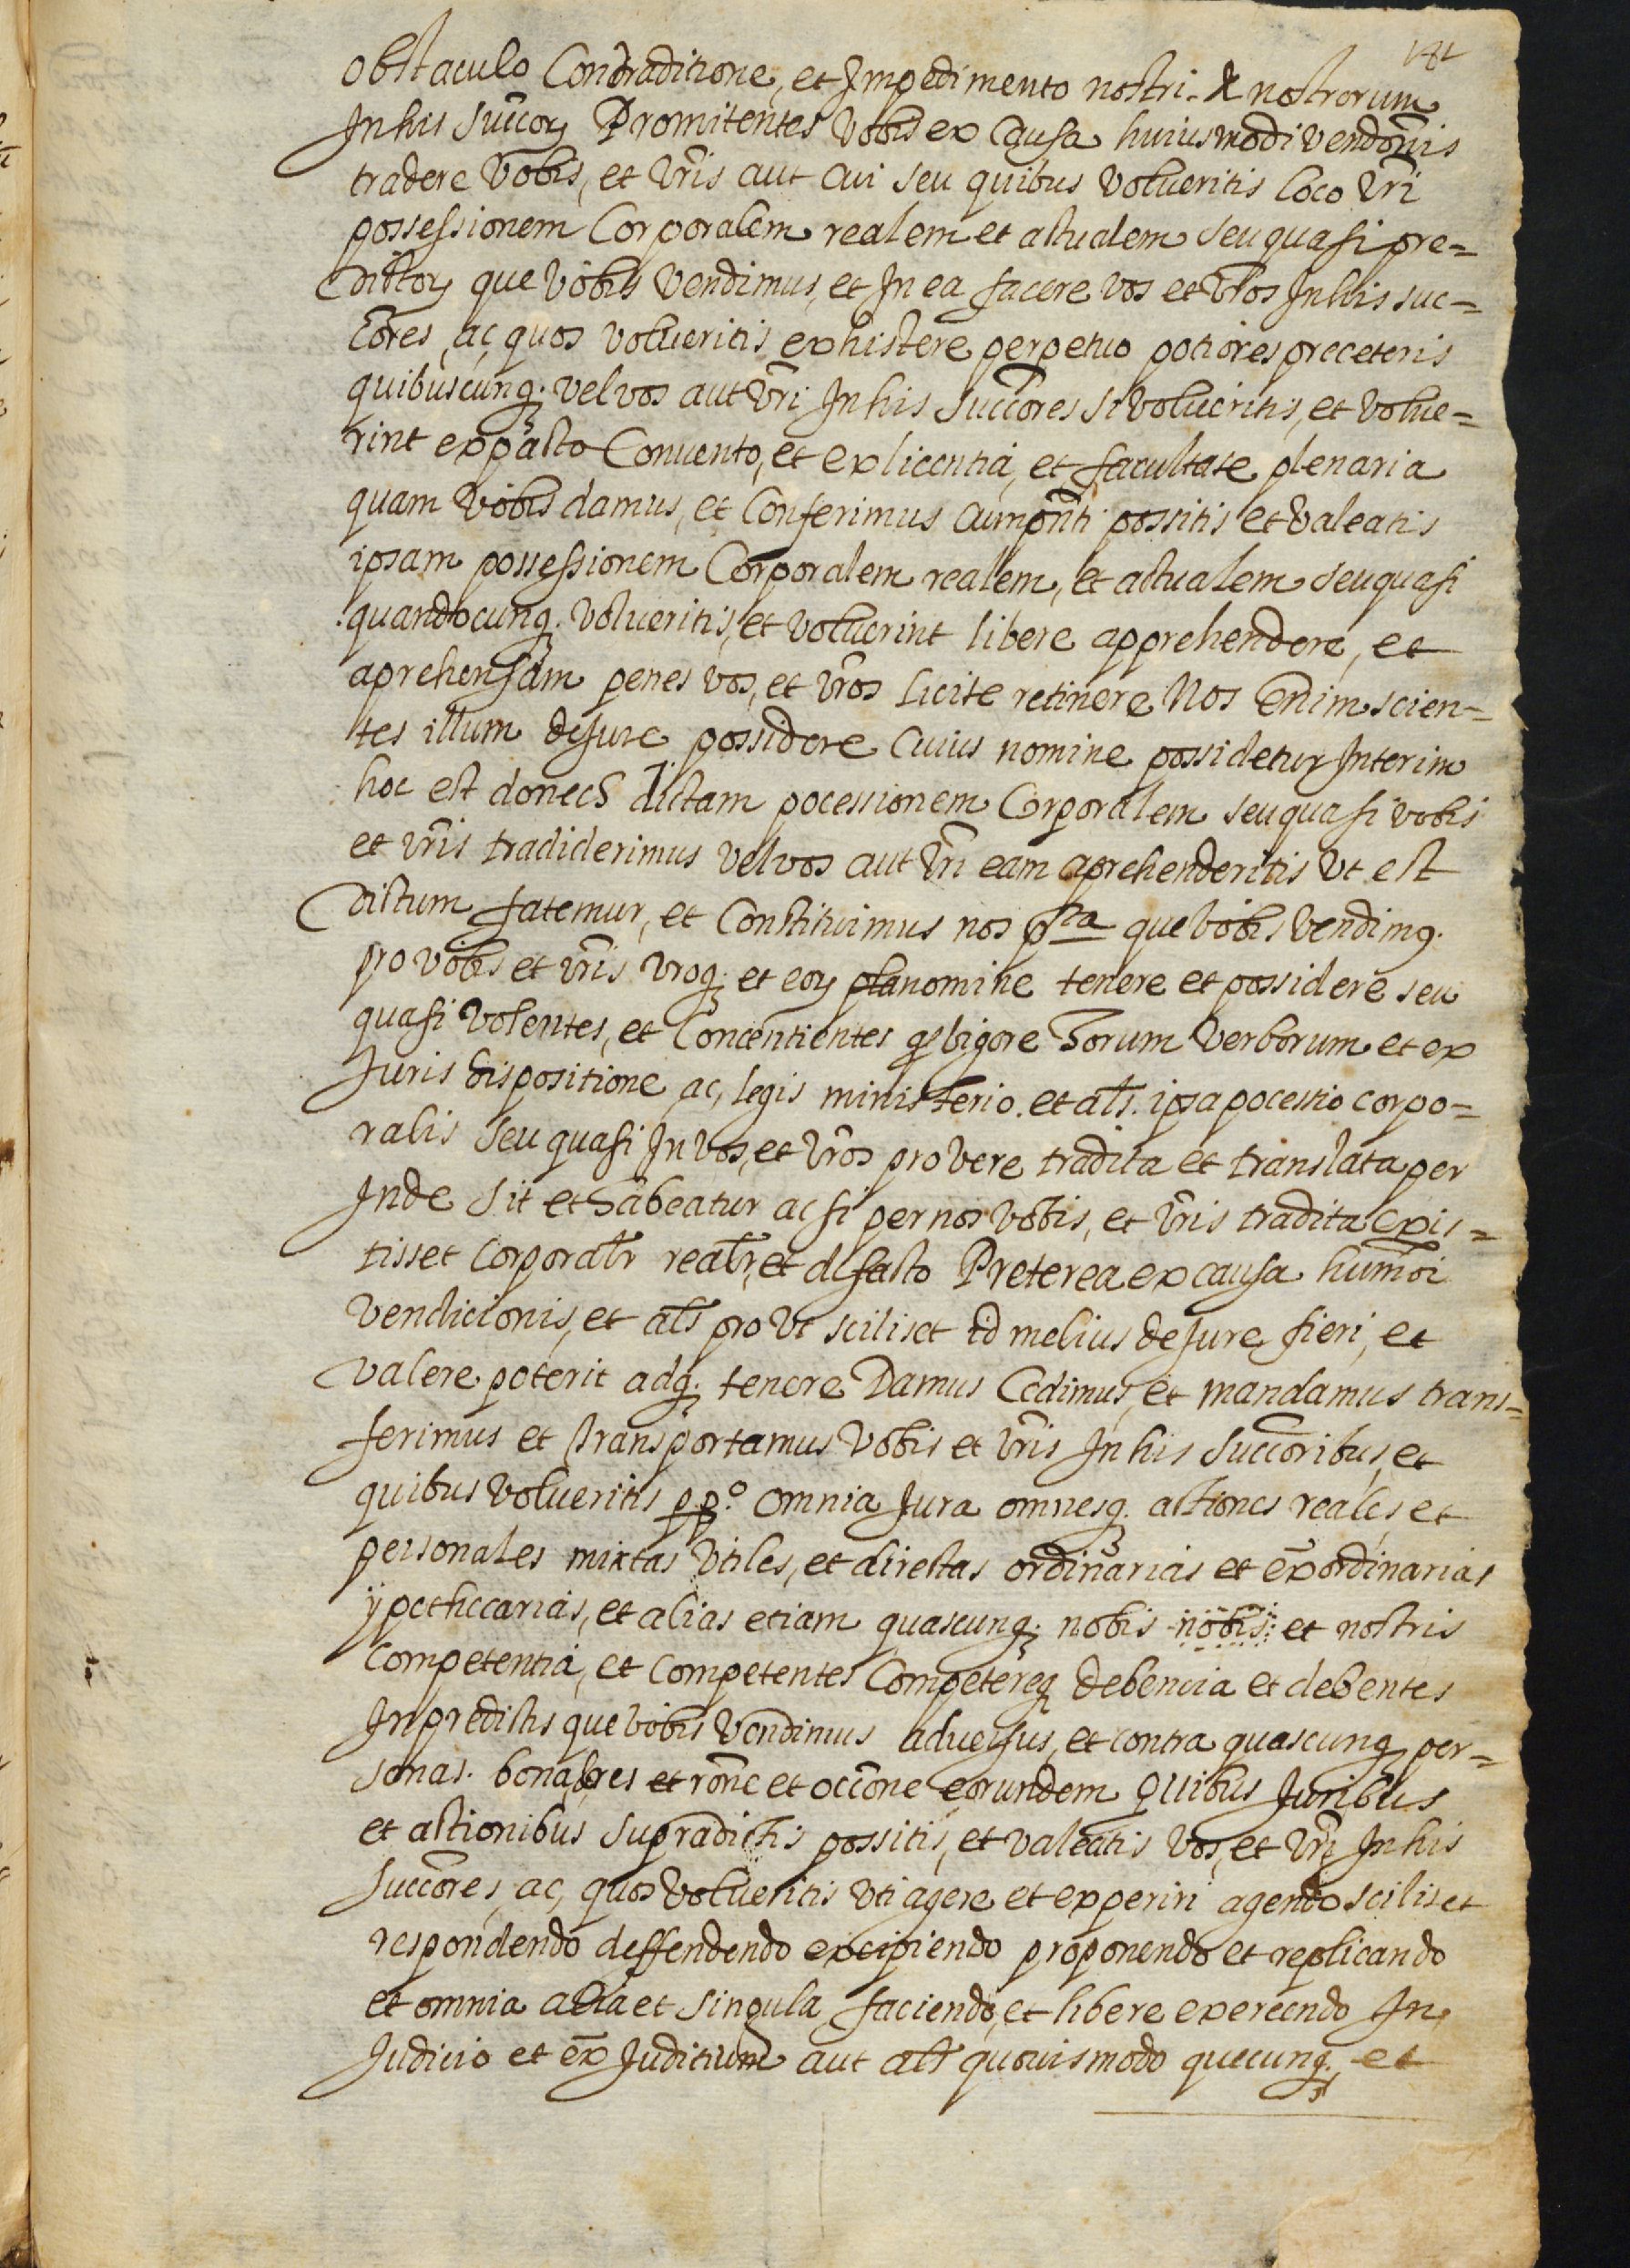 obstaculo Contraditione, et Impedimento nostri. & nostrorum
In his succory Promitentes vobis ex causa huiusmodi vendonis
tradere vobis, et vris aut cui seu quibus volueritis loco vri
possessionem Corporalem realem et actualem seu quasi pre=
dictory que vobis vendimus, et In ea facere vos et vros In his suc=
cores, ac quos volueritis exhistere perpetuo potiores preceteris
quibuscunq; vel vos aut vri In his succores si volueritis, et volue=
rint ex pacto Convento, et ex licentia, et facultate plenaria
quam vobis damus, et Conferimus cum pnti possitis et valeatis
ipsam possessionem Corporalem realem, et actualem seu quasi
quandocunq; volueritis, et voluerint libere apprehendere, et
aprehensam penes vos, et vros licite retinere Nos Enim scien=
tes illum de Jure possidere cuius nomine possidetur Interim
hoc est donech dictam pocessionem Corporalem seu quasi vobis
et vris tradiderimus vel vos aut vri eam aprehenderitis vt est
dictum fatemur, et Constituimus nos pta que vobis vendimq.
pro vobis et vris vroq; et eory pla nomine tenere et possidere seu
quasi volentes, et Concentientes q vigore horum verborum et ex
Juris dispositione ac, legis ministerio. et als. ipsa pocessio corpo=
ralis seu quasi In vos, et vros pro vere tradita et translata per
Inde sit et habeatur ac si per nos vobis, et vris tradita exis=
tisset corporalr realr, et de facto Preterea ex causa humoi
vendicionis, et als pro vt sciliset id melius de Jure fieri, et
valere poterit adq; tenere Damus Cedimus, et mandamus trans=
ferimus et transportamus vobis et vris In his succoribus, et
quibus volueritis ppo. omnia Jura omnesq; actiones reales, et
personales mixtas vtiles, et directas ordinarias et exordinarias
ypothecarias, et alias etiam quascunq; nobis nobis et nostris
Competentia, et Competentes Competereq; debencia et debentes
In predictis que vobis vendimus adversus, et contra quascunq; per=
sonas. bona, res et rone et occone eorundem Quibus Juribus
et actionibus supradictis possitis, et valeatis vos, et vri In his
succores, ac, quos volueritis vti agere et experiri agendo sciliset
respondendo deffendendo excipiendo proponendo et replicando
et omnia alia et singula faciendo, et libere exercendo In
Judicio et ex Juditium aut als quovis modo quecunq; et